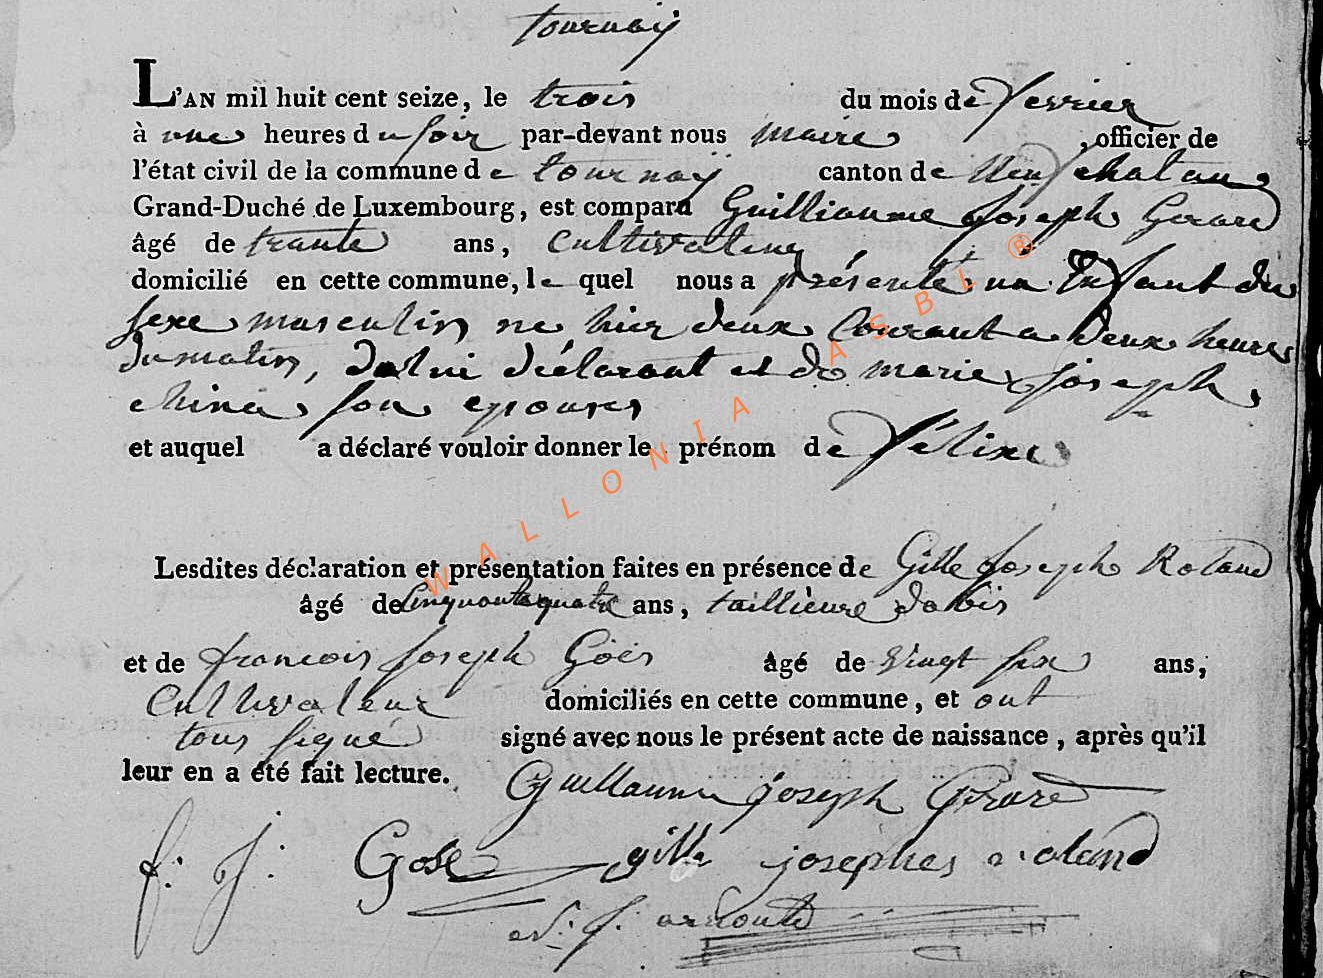 tournay
L'AN mil huit cent seize, le trois du mois de fevrier
à une heures du soir par-devant nous maire , officier de
l'état civil de la commune de tournay canton de Neufchateau
Grand-Duché de Luxembourg, est compara Guilliaume Joseph Gerard
âgé de trante ans, Cultivateur
domicilié en cette commune, le quel nous a présenté un Enfant du
sexe masculin ne hier deux Courant a deux heures
du matin, de lui déclarant et de marie joseph
china son epouse
et auquel a déclaré vouloir donner le prénom de félixe
Lesdites déclaration et présentation faites en présence de Gille Joseph Roland
âgé de Cinquante quatre ans, taillieure dabis
et de francois Joseph Goës âgé de vingt six ans,
Cultivateur domiciliés en cette commune, et ont
tous signé signé avec nous le présent acte de naissance, après qu'il
leur en a été fait lecture. Guillaume joseph Girard
f: J: Gose gille josephes roland
WALLONIA ASBL ®